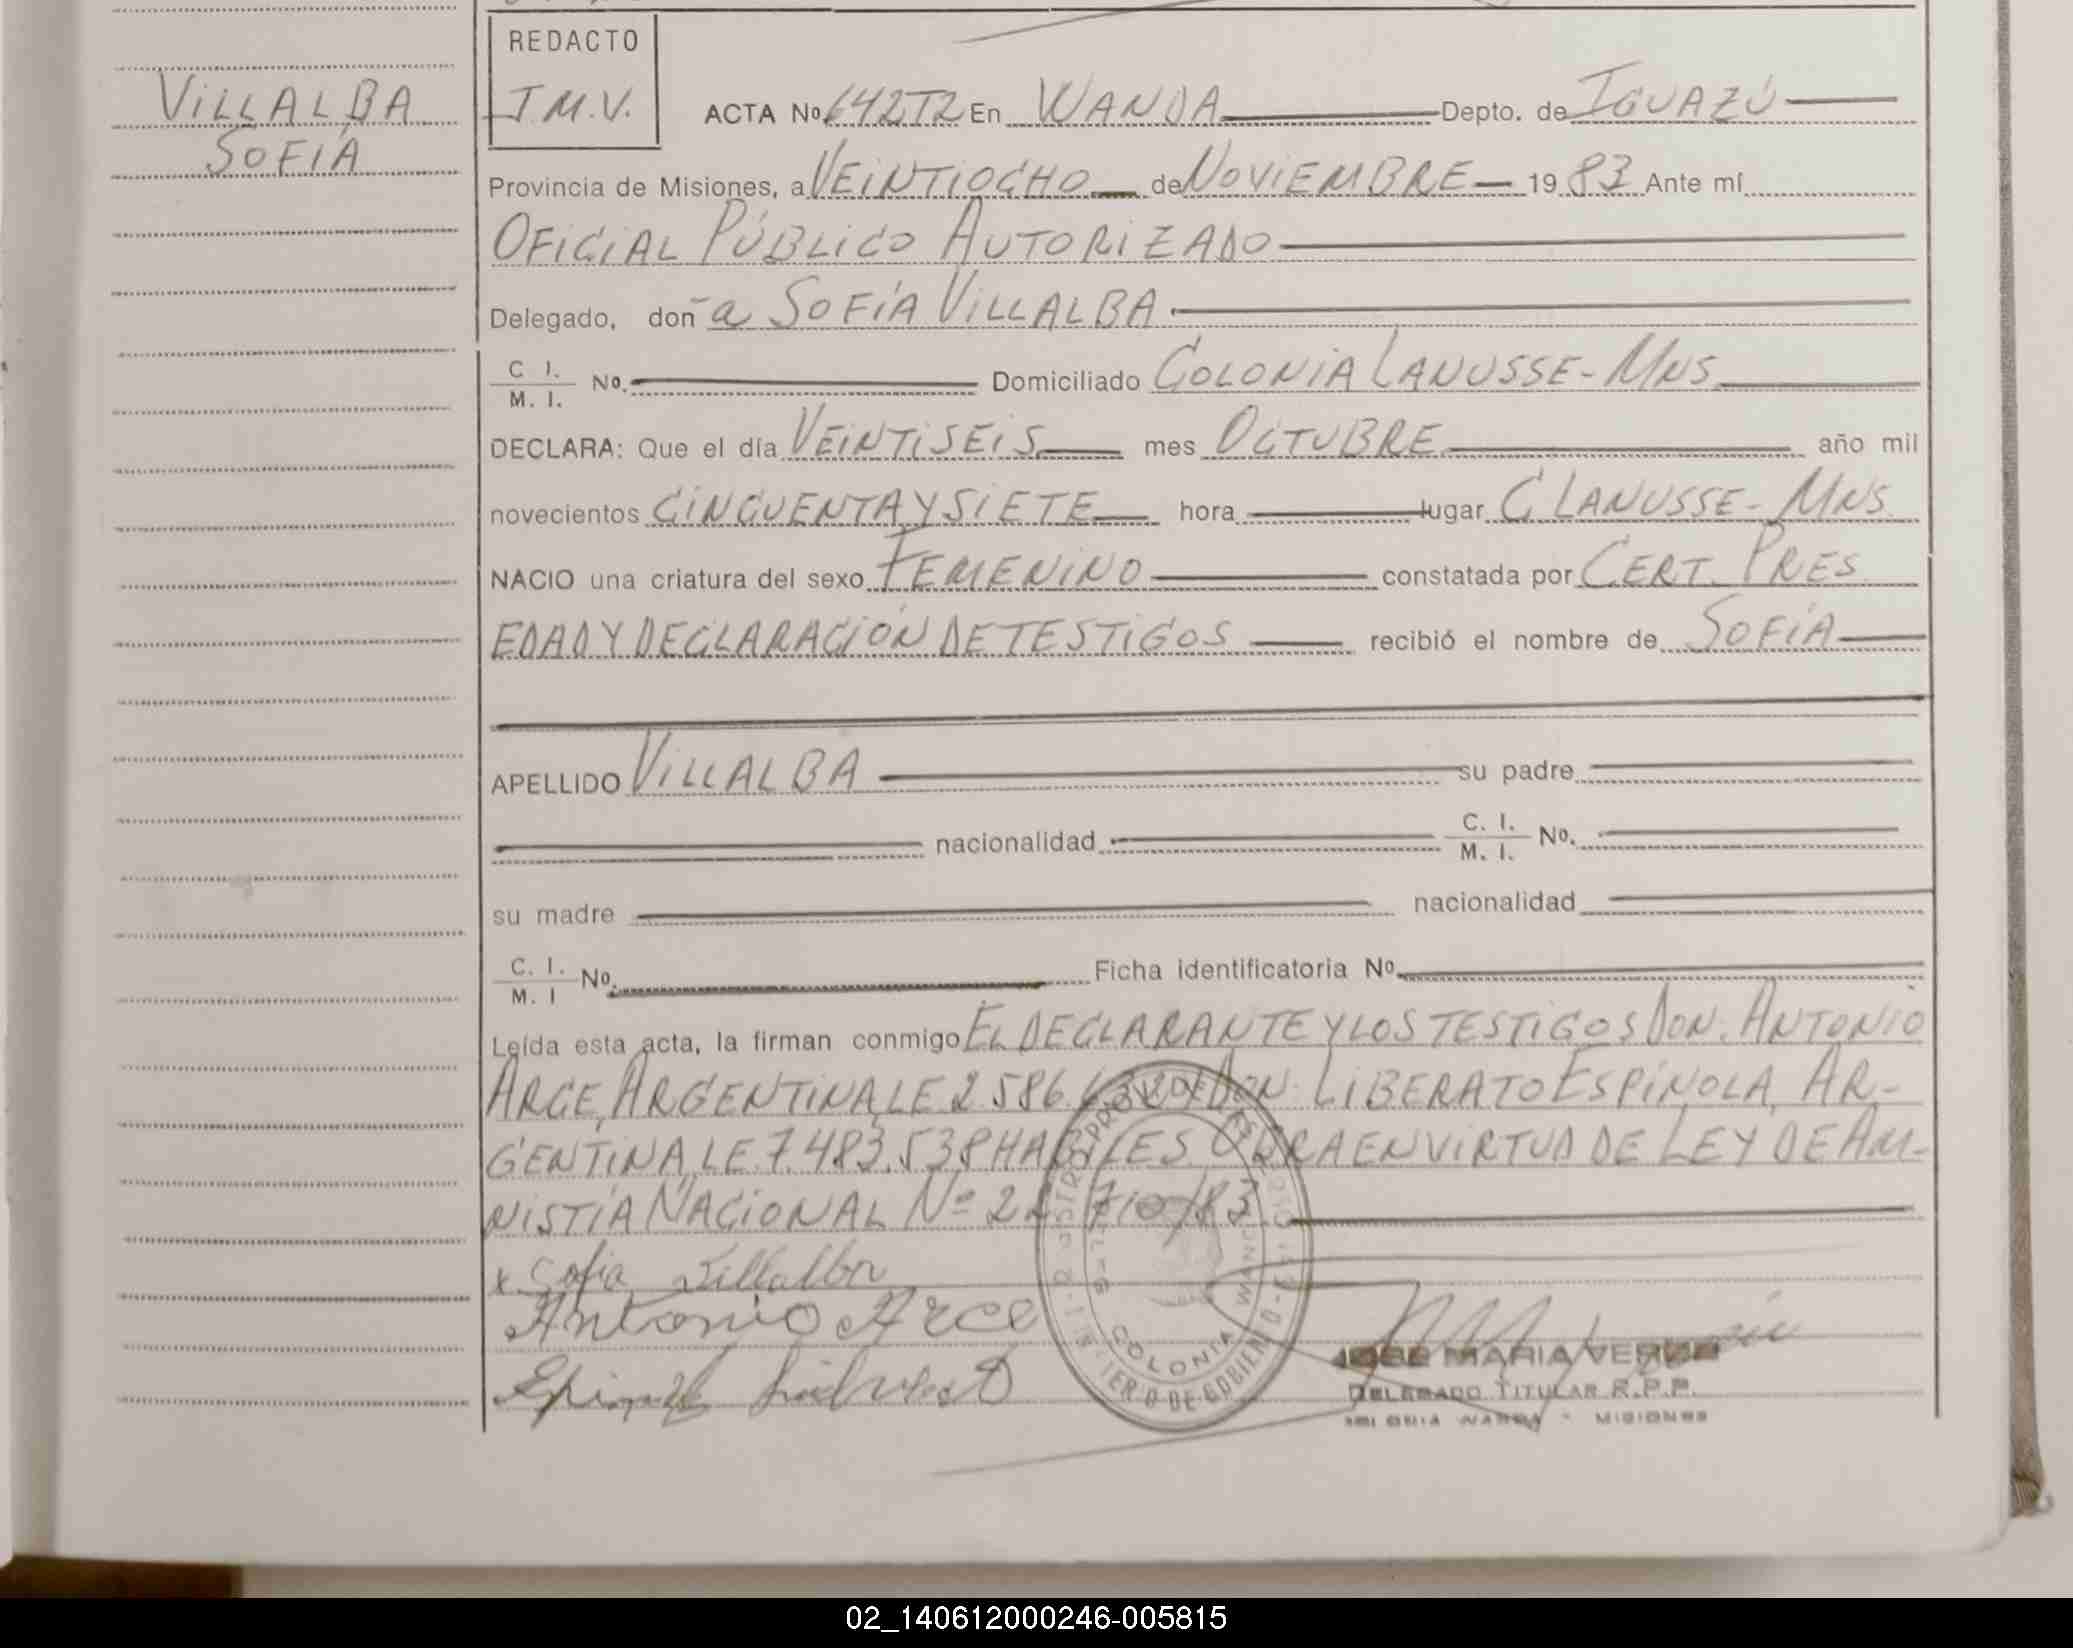 VILLALBA
SOFÍA
REDACTO
J.M.V.
ACTA No 642T2 En WANDA Depto. de IGUAZÚ
Provincia de Misiones, a VEINTIOCHO de NOVIEMBRE 19 83 Ante mí
OFICIAL PÚBLICO AUTORIZADO
Delegado, doñ a SOFÍA VILLALBA
C I. M. I. No. Domiciliado COLONIA LANUSSE - MNS
DECLARA: Que el día VEINTISEIS mes OCTUBRE año mil
novecientos CINCUENTA Y SIETE hora lugar C LANUSSE - MNS
NACIO una criatura del sexo FEMENINO constatada por CERT. PRES
EDAD Y DECLARACIÓN DE TESTIGOS recibió el nombre de SOFÍA
APELLIDO VILLALBA su padre
nacionalidad C. I. M. I. No.
su madre nacionalidad
C. I. M. I No. Ficha identificatoria No
Leída esta acta, la firman conmigo EL DECLARANTE Y LOS TESTIGOS DON. ANTONIO
ARCE, ARGENTINA, LE 2.586. DON. LIBERATO ESPÍNOLA, AR-
GENTINA, LE 7.483.538 HABILES OBRA EN VIRTUD DE LEY DE AM-
NISTÍA NACIONAL Nº 22 710/83
x Sofia Villalba
Antonio Arce
COLONIA
WANDA
MINISTERIO DE GOBIERNO
JOSE MARIA VERON
DELEGADO TITULAR R.P.P.
COLONIA WANDA - MISIONES
02_140612000246-005815